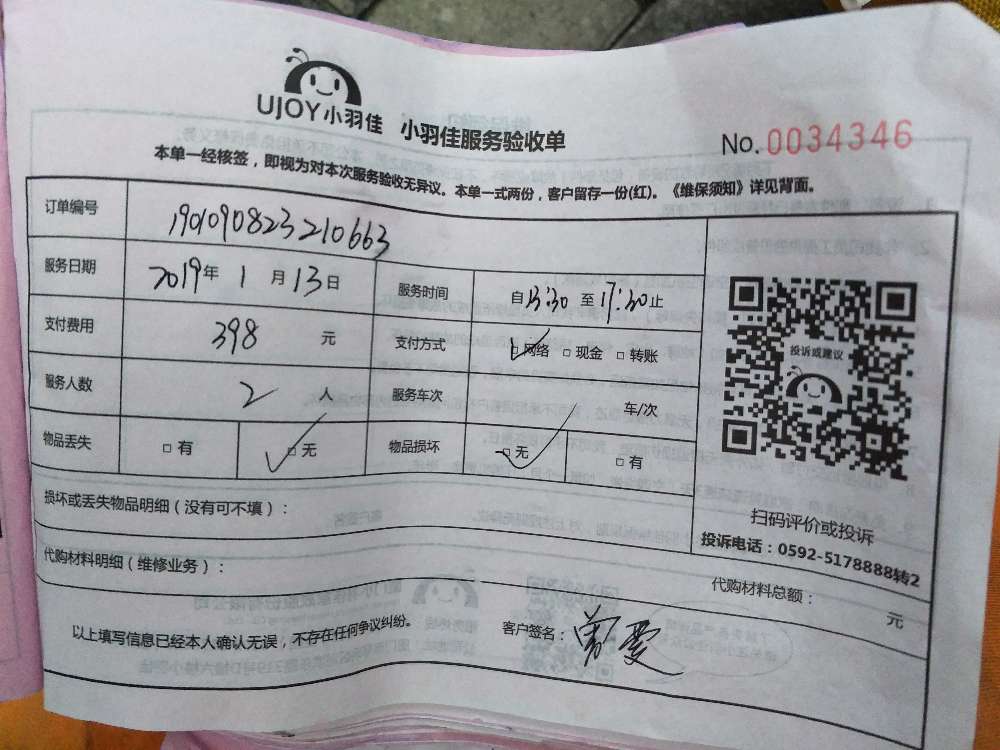 UJOY小羽佳 小羽佳服务验收单
No.0034346
本单一经核签，即视为对本次服务验收无异议。本单一式两份，客户留存一份(红)。《维保须知》详见背面。
订单编号 190109082321066３
服务日期 2019年 1 月 13日 服务时间 自13:30 至 17:30止
支付费用 398 元 支付方式 ☑网络 □现金 □转账
服务人数 2 人 服务车次 车/次
物品丢失 □有 ☑无 物品损坏 ☑无 □有
投诉或建议
扫码评价或投诉
投诉电话：0592-5178888转2
损坏或丢失物品明细（没有可不填）：
代购材料明细（维修业务）： 代购材料总额： 元
以上填写信息已经本人确认无误，不存在任何争议纠纷。 客户签名：